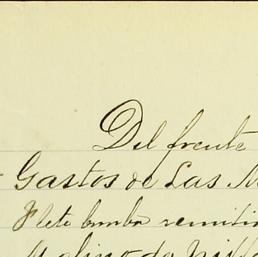 Del frente
Gastos de Las M
Flete bomba remiti
Molino de